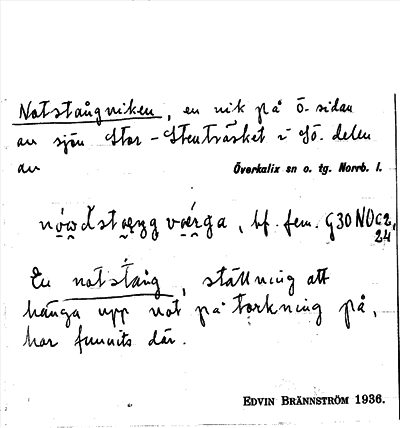 Notstångviken, en vik på ö. sidan
av sjön Stor-Stenträsket i sö. delen
av Överkalix sn o. tg. Norrb. l.
bf. fem. G30 NO C2,
24
En notstång, ställning att
hänga upp not på torkning på,
har funnits där.
EDVIN BRÄNNSTRÖM 1936.